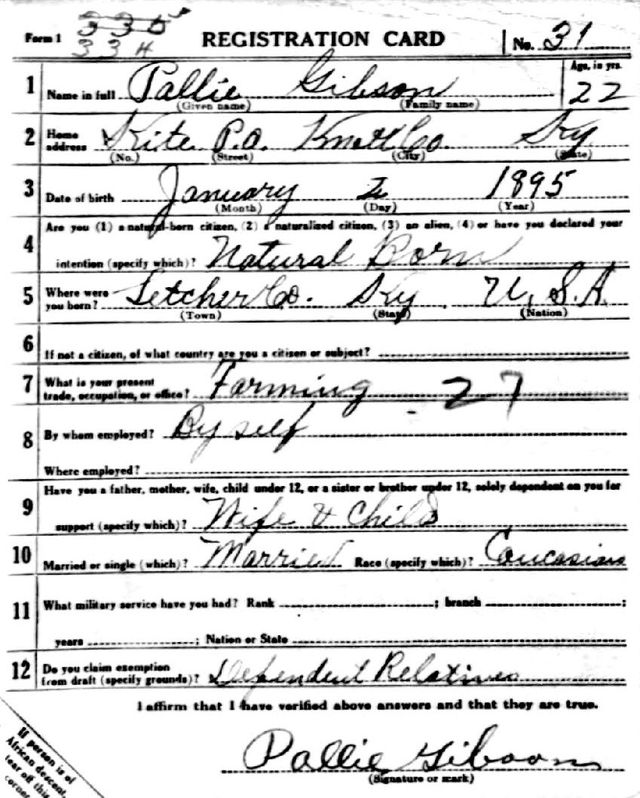 Form 1 335 REGISTRATION CARD No. 31
33 H
1 Name in full Pallie Gibson Age, in yrs. 22
(Given name) (Family name)
2 Home address Kite P.O. Knott Co. Ky
(No.) (Street) (City) (State)
3 Date of birth January 2 1895
(Month) (Day) (Year)
Are you (1) a natural-born citizen, (2) a naturalized citizen, (3) an alien, (4) or have you declared your
4 intention (specify which)? Natural Born
5 Where were you born? Letcher Co. Ky U.S.A.
(Town) (State) (Nation)
6 If not a citizen, of what country are you a citizen or subject?
7 What is your present trade, occupation, or office? Farming 27
8 By whom employed? By self
Where employed?
Have you a father, mother, wife, child under 12, or a sister or brother under 12, solely dependent on you for
9 support (specify which)? Wife & Child
10 Married or single (which)? Married Race (specify which)? Caucasian
11 What military service have you had? Rank ; branch ;
years ; Nation or State
12 Do you claim exemption from draft (specify grounds)? Dependent Relatives
I affirm that I have verified above answers and that they are true.
Pallie Gibson
(Signature or mark)
If person is of
African descent,
tear off this
corner